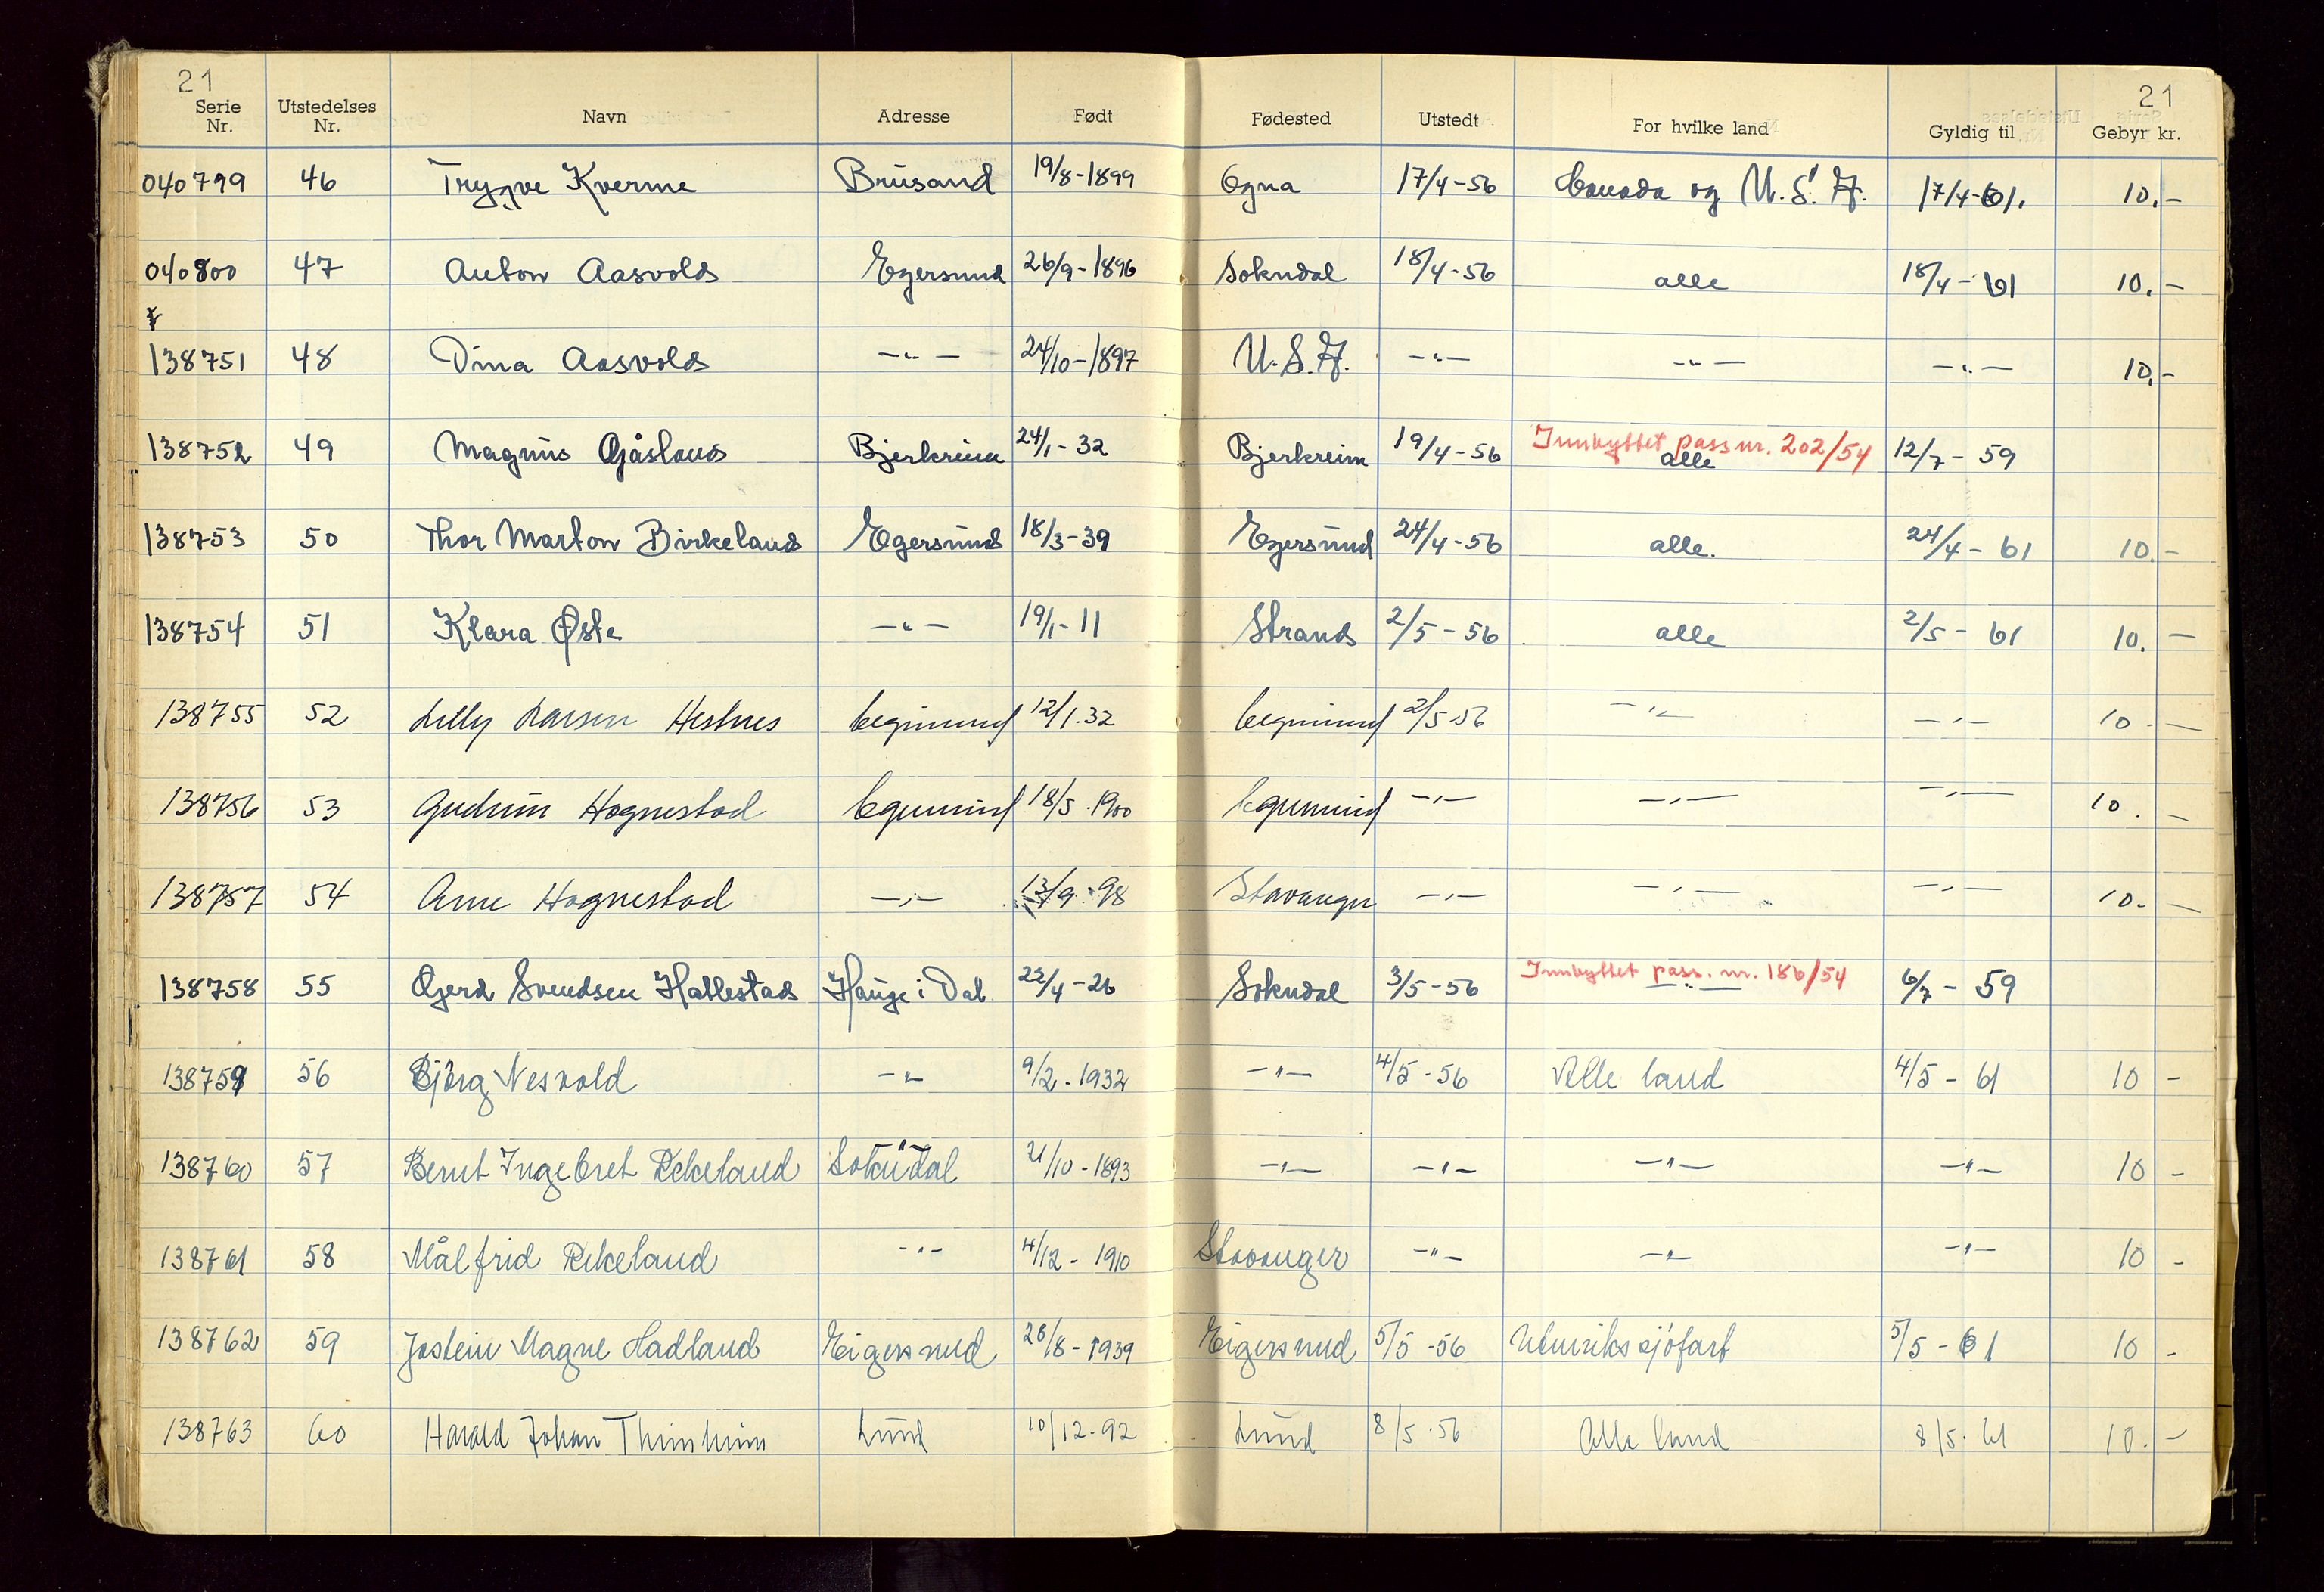 21 21
Serie Nr. Utstedelses Nr. Navn Adresse Født Fødested Utstedt For hvilke land Gyldig til Gebyr kr.
040799 46 Trygve Kverme Brusand 19/8-1899 Ogna 17/4-56 Canada og U.S.A. 17/4-61. 10.-
040800 47 Anton Aasvold Egersund 26/9-1896 Sokndal 18/4-56 alle 18/4-61 10.-
138751 48 Dina Aasvold -"- 24/10-1897 U.S.A. -"- -"- -"- 10,-
138752 49 Magnus Gåsland Bjerkreim 24/1-32 Bjerkreim 19/4-56 Innbyttet pass nr. 202/54 alle 12/7-59
138753 50 Thor Marton Birkeland Egersund 18/3-39 Egersund 24/4-56 alle. 24/4-61 10.-
138754 51 Klara Øste -"- 19/1-11 Strand 2/5-56 alle 2/5-61 10.-
138755 52 Lilly Larsen Hestnes Egersund 12/1.32 Egersund 2/5-56 -"- -"- 10.-
138756 53 Gudrun Hognestad Egersund 18/5.1900 Egersund -"- -"- -"- 10.-
138757 54 Arne Hognestad -"- 13/9-98 Stavanger -"- -"- -"- 10.-
138758 55 Gerd Svendsen Hallestad Hauge i Dal. 22/4-26 Sokndal 3/5-56 Innbyttet pass. nr. 186/54 -"- 6/7-59
138759 56 Björg Nesvold -"- 9/2-1932 -"- 4/5-56 Alle land 4/5-61 10-
138760 57 Bernt Ingebret Rekeland Sokndal 21/10-1893 -"- -"- -"- -"- 10-
138761 58 Målfrid Rekeland -"- 4/12-1910 Stavanger -"- -"- -"- 10-
138762 59 Jostein Magne Hadland Eigersund 28/8-1939 Eigersund 5/5-56 Utenriks sjöfart 5/5-61 10-
138763 60 Harald Johan Lund 10/12-92 Lund 8/5.56 Alle land 8/5.61 10.-